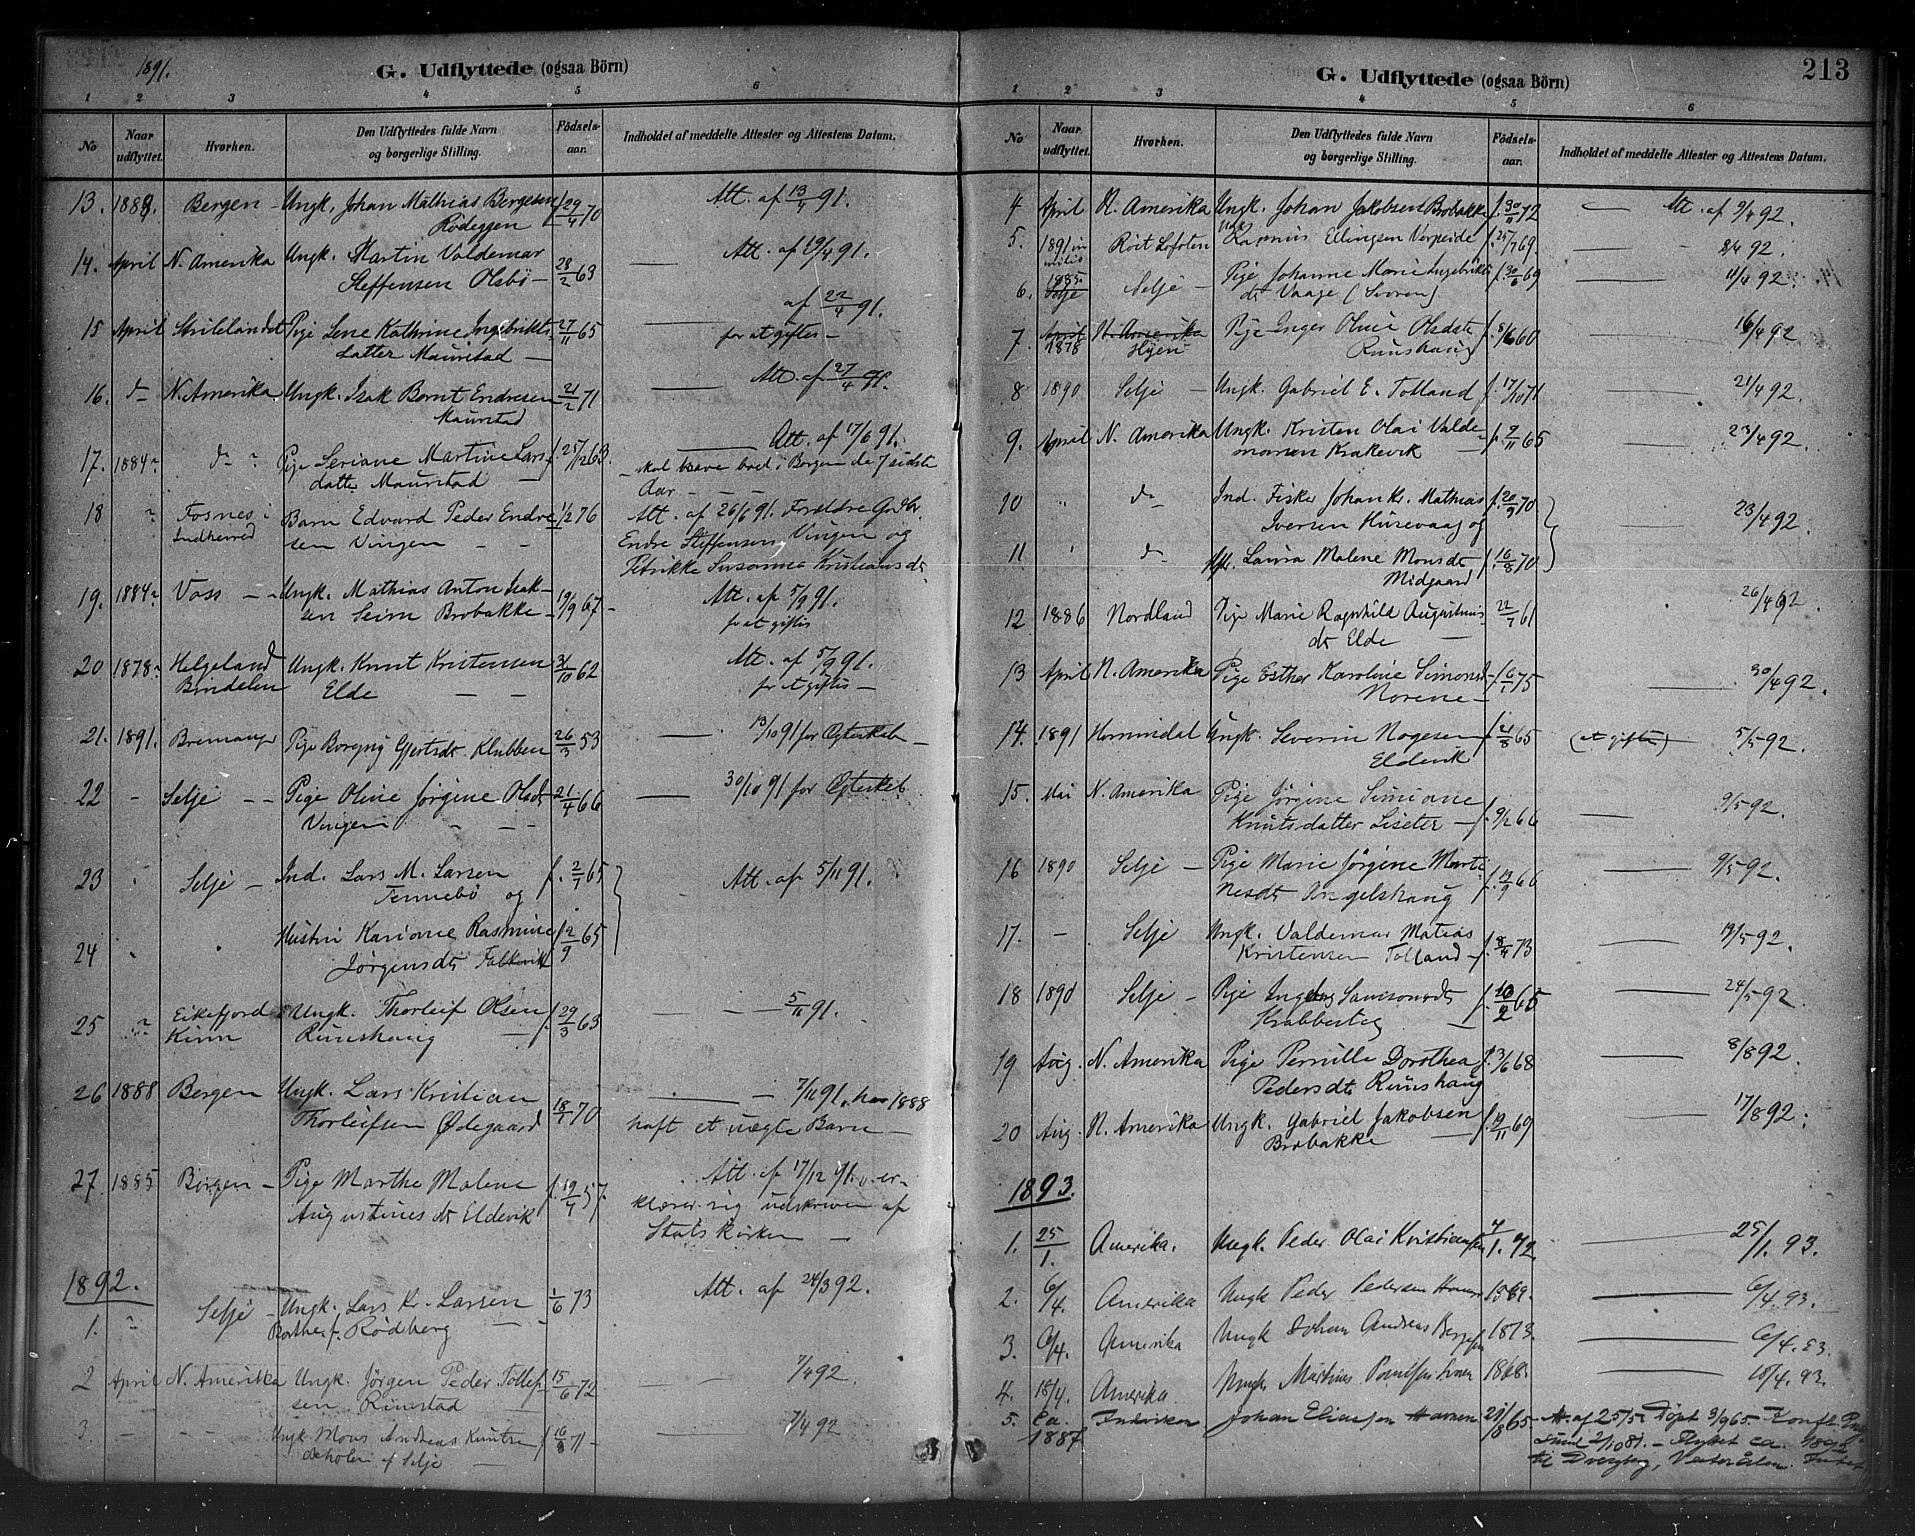 1891.
G. Udflyttede (ogsaa Börn)
1 2 3 4 5 6
No
Naar udflyttet.
Hvorhen.
Den Udflyttedes fulde Navn og borgerlige Stilling.
Födsels-aar.
Indholdet af meddelte Attester og Attestens Datum.
13. 1888. Bergen - Ungk. Johan Mathias Bergesen f. 29/4 70 Att. af 13/4 91.
Rödeggen
14. April N. Amerika Ungk. Martin Valdemar 28/2 63 Att. af 19/4 91.
Steffensen Olsbö -
15 April Strilelandet Pige Lene Kathrine Ingebrikts- 27/11 65 af 22/4 91.
datter Maurstad - for at giftes -
16. d- N. Amerika Ungk. Isak Bernt Endresen 21/2 71 Att. af 27/4 91.
Maurstad
17. 1884 d- Pige Seriane Martine Lars f. 25/12 63. Att. af 17/6 91.
datter Maurstad - - skal have boet i Bergen de 7 sidste
Aar - - -
18 Fosnes i Barn Edvard Peder Endre 1/2 76 Att. af 26/6 91. Forældre Gr.br.
Indherred sen Vingen - - Endre Steffensen Vingen og
Petrikke Susanna Kristiansdr
19. 1884 Voss - - Ungk. Mathias Anton Isak- 19/9 67 - Att. af 5/9 91.
sen Seim Brobakke - for at giftes
20 1878 Helgeland Ungk. Knut Kristensen 31/10 62 Att. af 5/9 91.
Bindalen Elde - - for at giftes -
21. 1891. Bremanger Pige Borgny Gjertsdt Klubben 26/3 53 13/10 91 for Ægteskab
22 - Selje - - Pige Oline Jörgine Olsdt 21/4 66 30/10 91 for Ægteskab
Vingen - - -
23 Selje - Ind. Lars M. Larsen f. 2/7 65 Att. af 5/11 91.
Tennebö og
24 Hustru Kariane Rasmine f. 2/9 65
Jörgensdt Falkevik
25 Eikefjord Ungk. Thorleif Olsen f. 29/3 63 - - - 5/11 91.
Kinn Runshaug -
26 1888 Bergen Ungk. Lars Kristian 18/1 70 - 7/11 91. har 1888
Thorleifsen Ødegaard havt et uægte Barn -
27. 1885 Bergen - Pige Marthe Malene f. 19/4 57. Att. af 17/12 91. er-
Augustinesdt Eldevik klærer sig udskreven af
Statskirken -
1892.
1. Selje - Ungk. Lars Kr. Larsen 1/6 73 Att. af 24/3 92.
Rödberg - -
2 April N. Amerika Ungk. Jörgen Peder Tollef- 15/6 72 - - 7/4 92.
sen Rimstad -
3. - - Ungk Mons Andreas Knutse f. 16/8 71 - 7/4 92
af Selje -
G. Udflyttede (ogsaa Börn)
213
1 2 3 4 5 6
No
Naar udflyttet.
Hvorhen.
Den Udflyttedes fulde Navn og borgerlige Stilling.
Födsels-aar.
Indholdet af meddelte Attester og Attestens Datum.
4 April N. Amerika Ungk. Johan Jakobsen Brobakke f. 30/11 72 - Att. af 9/4 92.
5. 1891 Röst Lofoten Rasmus Ellingsen Vorpeide f. 25/7 69. 8/4 92.
6. 1885 Selje - Pige Johanne Marie Ingebrikt f. 30/6 69 11/4 92.
dt Vaage (Svoren)
7. April N. Amerika Pige Inger Oline Olsdatt f. 8/6 60 16/4 92.
1878 Hyen Runshaug
8 1890 Selje - Ungk. Gabriel E. Totland f. 17/10 71 21/4 92.
9. April N. Amerika Ungk. Kristen Olai Valde- f. 9/11 65 23/4 92.
marsen Krakevik -
10 d- Ind. Fisker Johan Kr. Mathias f. 20/9 70 23/4 92.
Iversen Husevaag og
11 d- Laura Malene Monsdt f. 16/8 70
Midgaard
12 1886 Nordland Pige Marie Ragnhild Augustinus 22/7 61 26/4 92
dt Elde -
13 April N. Amerika Pige Esther Karoline Simonsd f. 6/1 75 30/4 92.
Norene -
14. 1891 Hornindal Ungk. Severin Nogesen f. 21/8 65 (at giftes) 5/5 92.
Eldevik
15. Mai N. Amerika Pige Jörgine Simiane f. 9/2 66 9/5 92.
Knutsdatter Liseter -
16 1890 Selje - Pige Marie Jörgine Marti f. 19/9 66 9/5 92.
nesdt Angelshaug
17. - Selje Ungk. Valdemar Matias f. 8/4 73 19/5 92.
Kristensen Totland -
18 1890 Selje - Pige Ingeborg Samsonsdt f. 10/2 65 24/5 92.
Krabbestig -
19 Aug. N. Amerika Pige Pernille Dorothea f. 3/6 68 8/8 92.
Pedersdt Runshaug
20 Aug. N. Amerika Ungk. Gabriel Jakobsen f. 19/11 69 17/8 92.
Brobakke -
1893.
1. 25/1. Amerika. Ungk. Peder Olai Kristiansen 4/1. 72 25/1. 93.
2. 6/4. Amerika Ungk Peder Pedersen 1869. 6/4. 93.
3. 6/4. Amerika Ungk Johan Andreas 1873. 6/4. 93.
4. 18/4. Amerika. Ungk Martinus 1868. 18/4. 93.
5. Ca. Johan Eliassen Havnen 21/8 65 A. af 25/5. Döpt 3/9 65. Konft.
1887 sund 2/10 81. - Flyttet ca. 1892
til Dverberg, Vesteraalen.